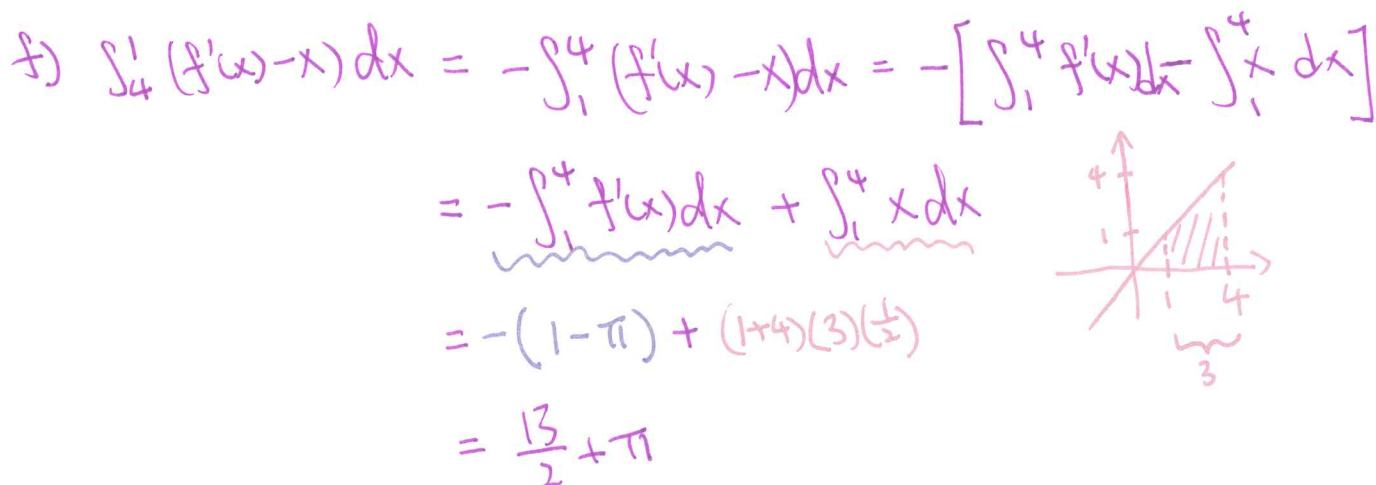 f) ∫₄¹ (f'(x)-x) dx = -∫₁⁴ (f'(x) -x)dx = -[∫₁⁴ f'(x)dx - ∫₁⁴ x dx]
= -∫₁⁴ f'(x)dx + ∫₁⁴ x dx
4
1
1 4
3
= -(1-π) + (1+4)(3)(1/2)
= 13/2 + π